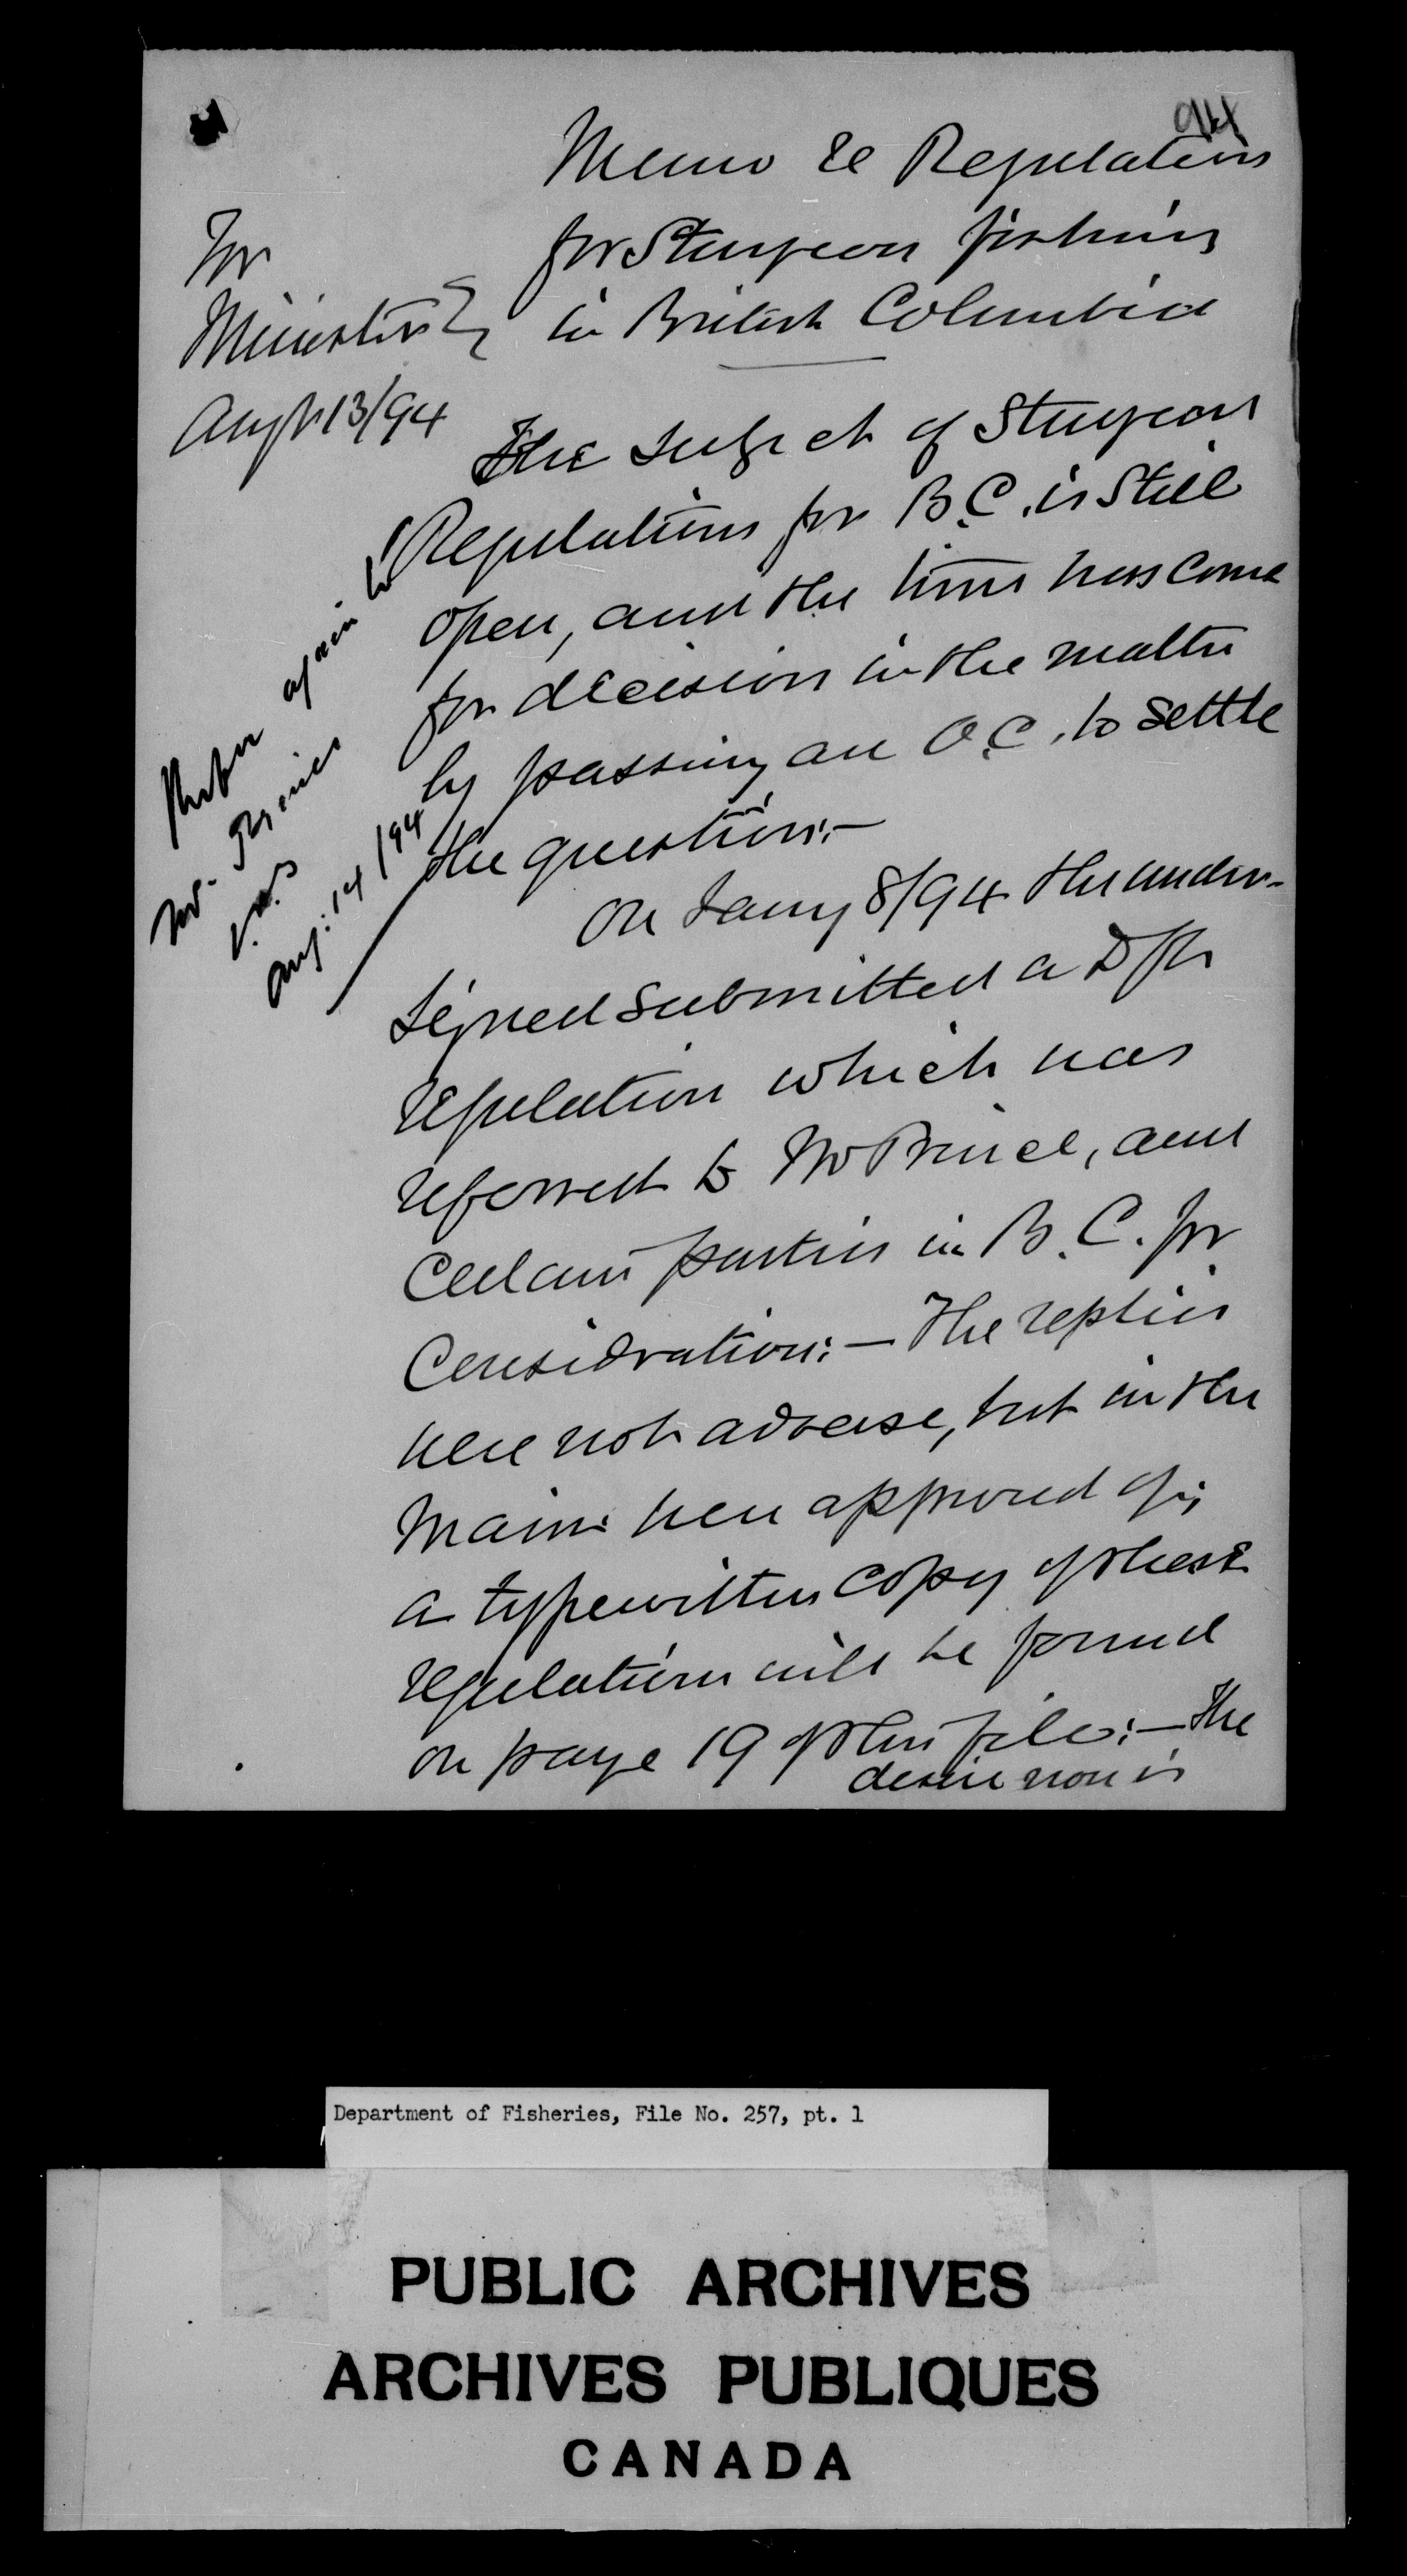 94
Memo re Regulations
for Sturgeon fishing
in British Columbia
For
Minister
Augt 13/94
The subject of Sturgeon
Regulations for B.C. is still
open, and the time has come
for decision in the matter
by passing an O.C. to settle
the question:—
Refer again to
Mr. Prince
Aug: 14/94
On Jany 8/94 the under-
signed submitted a Dft
regulation which was
referred to Mr Prince, and
certain parties in B.C. for
consideration:— The replies
were not adverse, but in the
main were approved of;
a typewritten copy of these
regulations will be found
on page 19 of this file:— The
desire now is
Department of Fisheries, File No. 257, pt. 1
PUBLIC ARCHIVES
ARCHIVES PUBLIQUES
CANADA